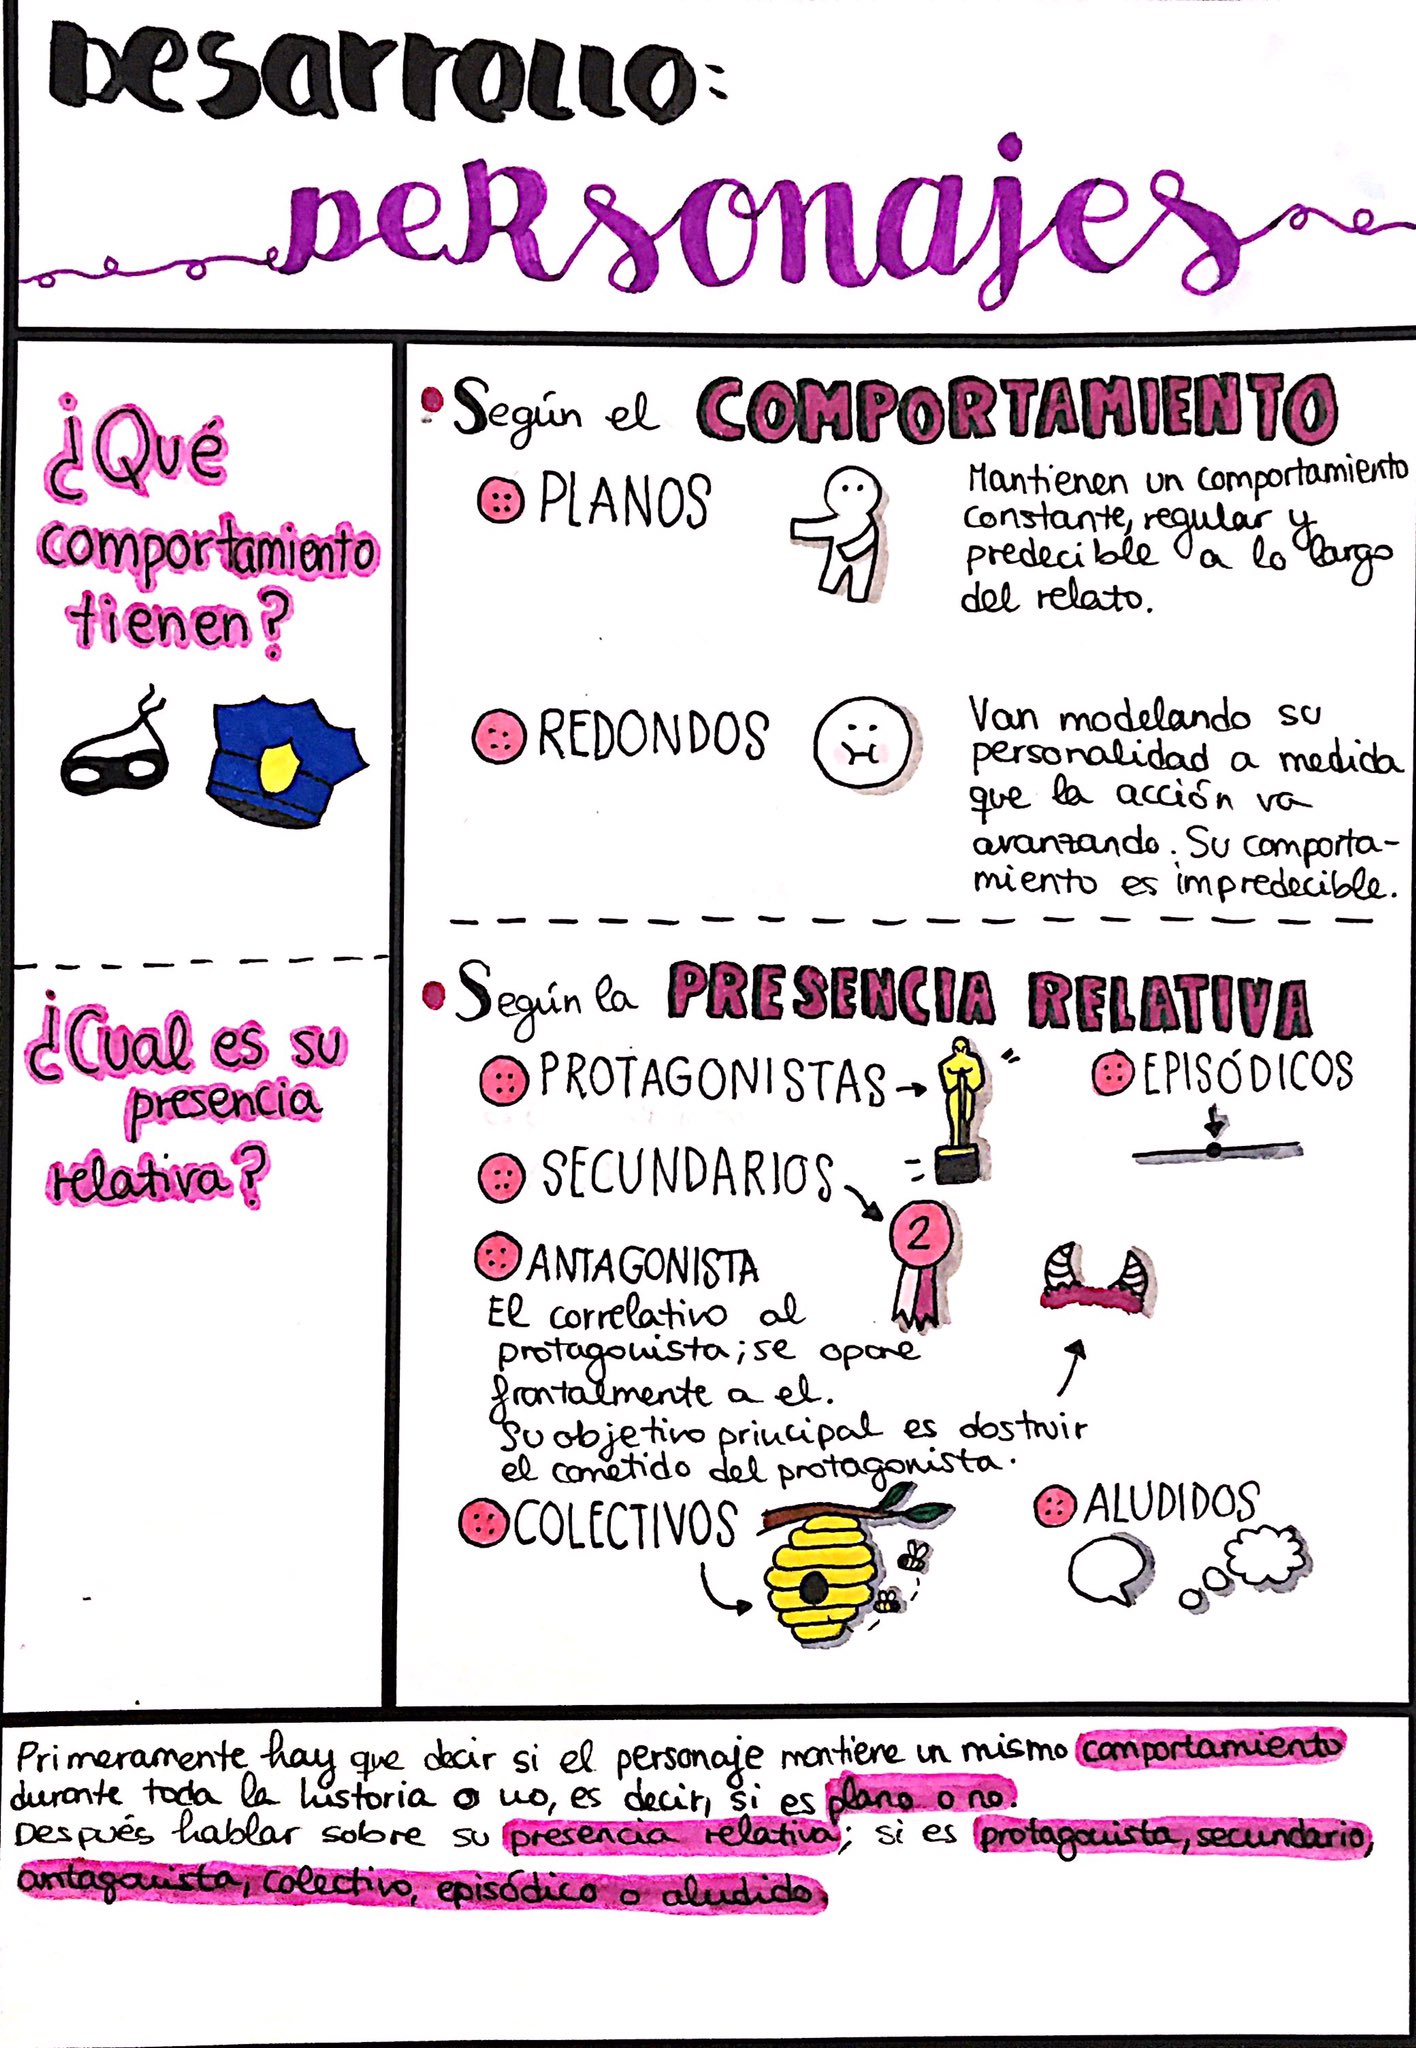 Desarrollo:
personajes
¿Qué
comportamiento
tienen?
¿Cual es su
presencia
relativa?
• Según el COMPORTAMIENTO
PLANOS
Mantienen un comportamiento
constante, regular y
predecible a lo largo
del relato.
REDONDOS
Van modelando su
personalidad a medida
que la acción va
avanzando. Su comporta-
miento es impredecible.
• Según la PRESENCIA RELATIVA
PROTAGONISTAS →
EPISÓDICOS
SECUNDARIOS
2
ANTAGONISTA
El correlativo al
protagonista; se opone
frontalmente a el.
Su objetivo principal es obstruir
el cometido del protagonista.
COLECTIVOS
ALUDIDOS
Primeramente hay que decir si el personaje mantiene un mismo comportamiento
durante toda la historia o no, es decir, si es plano o no.
Después hablar sobre su presencia relativa; si es protagonista, secundario,
antagonista, colectivo, episódico o aludido.